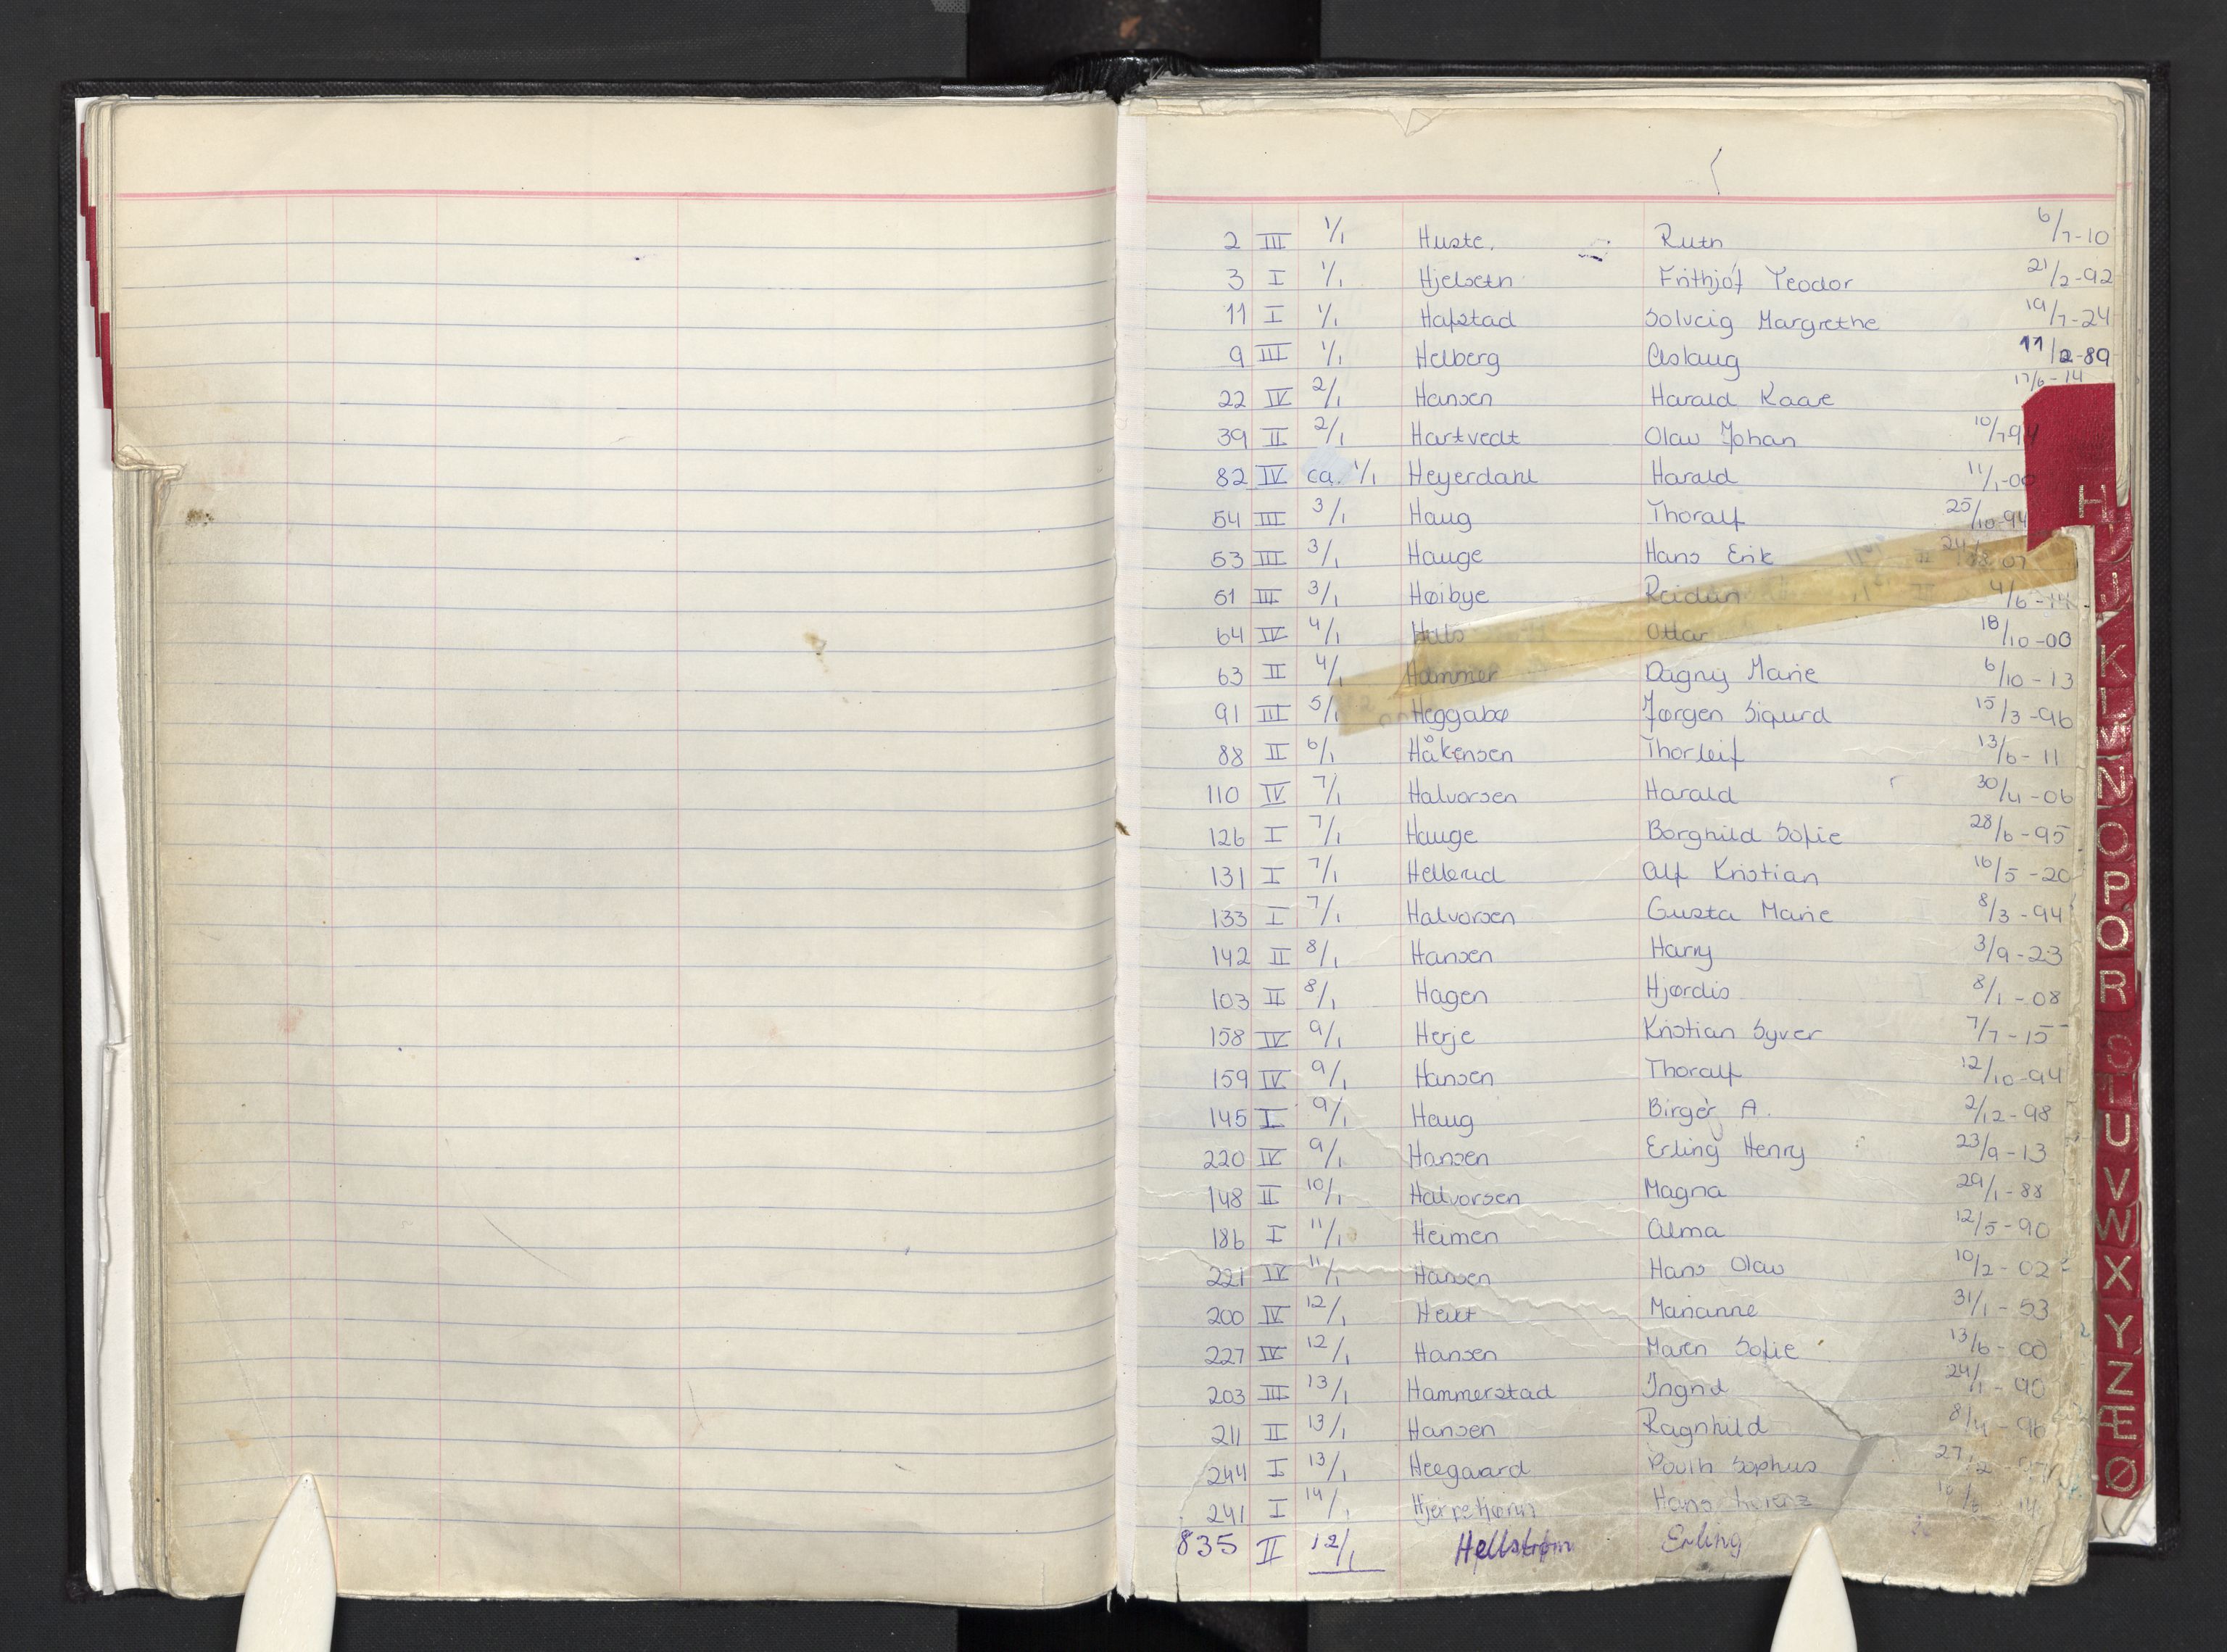 2 III 1/1 Huste. Ruth 6/7-10
3 I 1/1 Hjelseth Frithjof Teodor 21/2-92
11 I 1/1 Hafstad Solveig Margrethe 19/7-24
9 III 1/1 Helberg Aslaug 11/2-89
22 IV 2/1 Hansen Harald Kaare 17/6-14
39 II 2/1 Hartvedt Olav Johan 10/7 94
82 IV ca. 1/1 Heyerdahl Harald 11/1-00
54 III 3/1 Haug Thoralf 25/10-94
53 III 3/1 Hauge Hans Erik 07
51 III 3/1 Høibye Reidun 4/6-14
64 IV 4/1 Ottar 18/10-00
63 II 4/1 Hammer Dagny Marie 6/10-13
91 III 5/1 Heggabø Jørgen Sigurd 15/3-96
88 II 6/1 Håkensen Thorleif 13/6-11
110 IV 7/1 Halvorsen Harald 30/4-06
126 I 7/1 Hauge Borghild Sofie 28/6-95
131 I 7/1 Hellerud Alf Kristian 16/5-20
133 I 7/1 Halvorsen Gusta Marie 8/3-94
142 II 8/1 Hansen Harry 3/9-23
103 II 8/1 Hagen Hjørdis 8/1-08
158 IV 9/1 Herje Kristian Syver 7/7-15
159 IV 9/1 Hansen Thoralf 12/10-94
145 I 9/1 Haug Birger A. 2/12-98
220 IV 9/1 Hansen Erling Henry 23/9-13
148 II 10/1 Halvorsen Magna 29/1-88
186 I 11/1 Heimen Alma 12/5-90
221 IV 11/1 Hansen Hans Olav 10/2-02
200 IV 12/1 Marianne 31/1-53
227 IV 12/1 Hansen Maren Sofie 13/6-00
203 III 13/1 Hammerstad Ingrid 24/1-90
211 II 13/1 Hansen Ragnhild 8/4-96
244 I 13/1 Heegaard Sophus
241 I 14/1 Hans
835 II 12/1 Hellstrøm Erling
H
J
K
L
M
N
O
P
Q
R
S
T
U
V
W
X
Y
Z
Æ
Ø